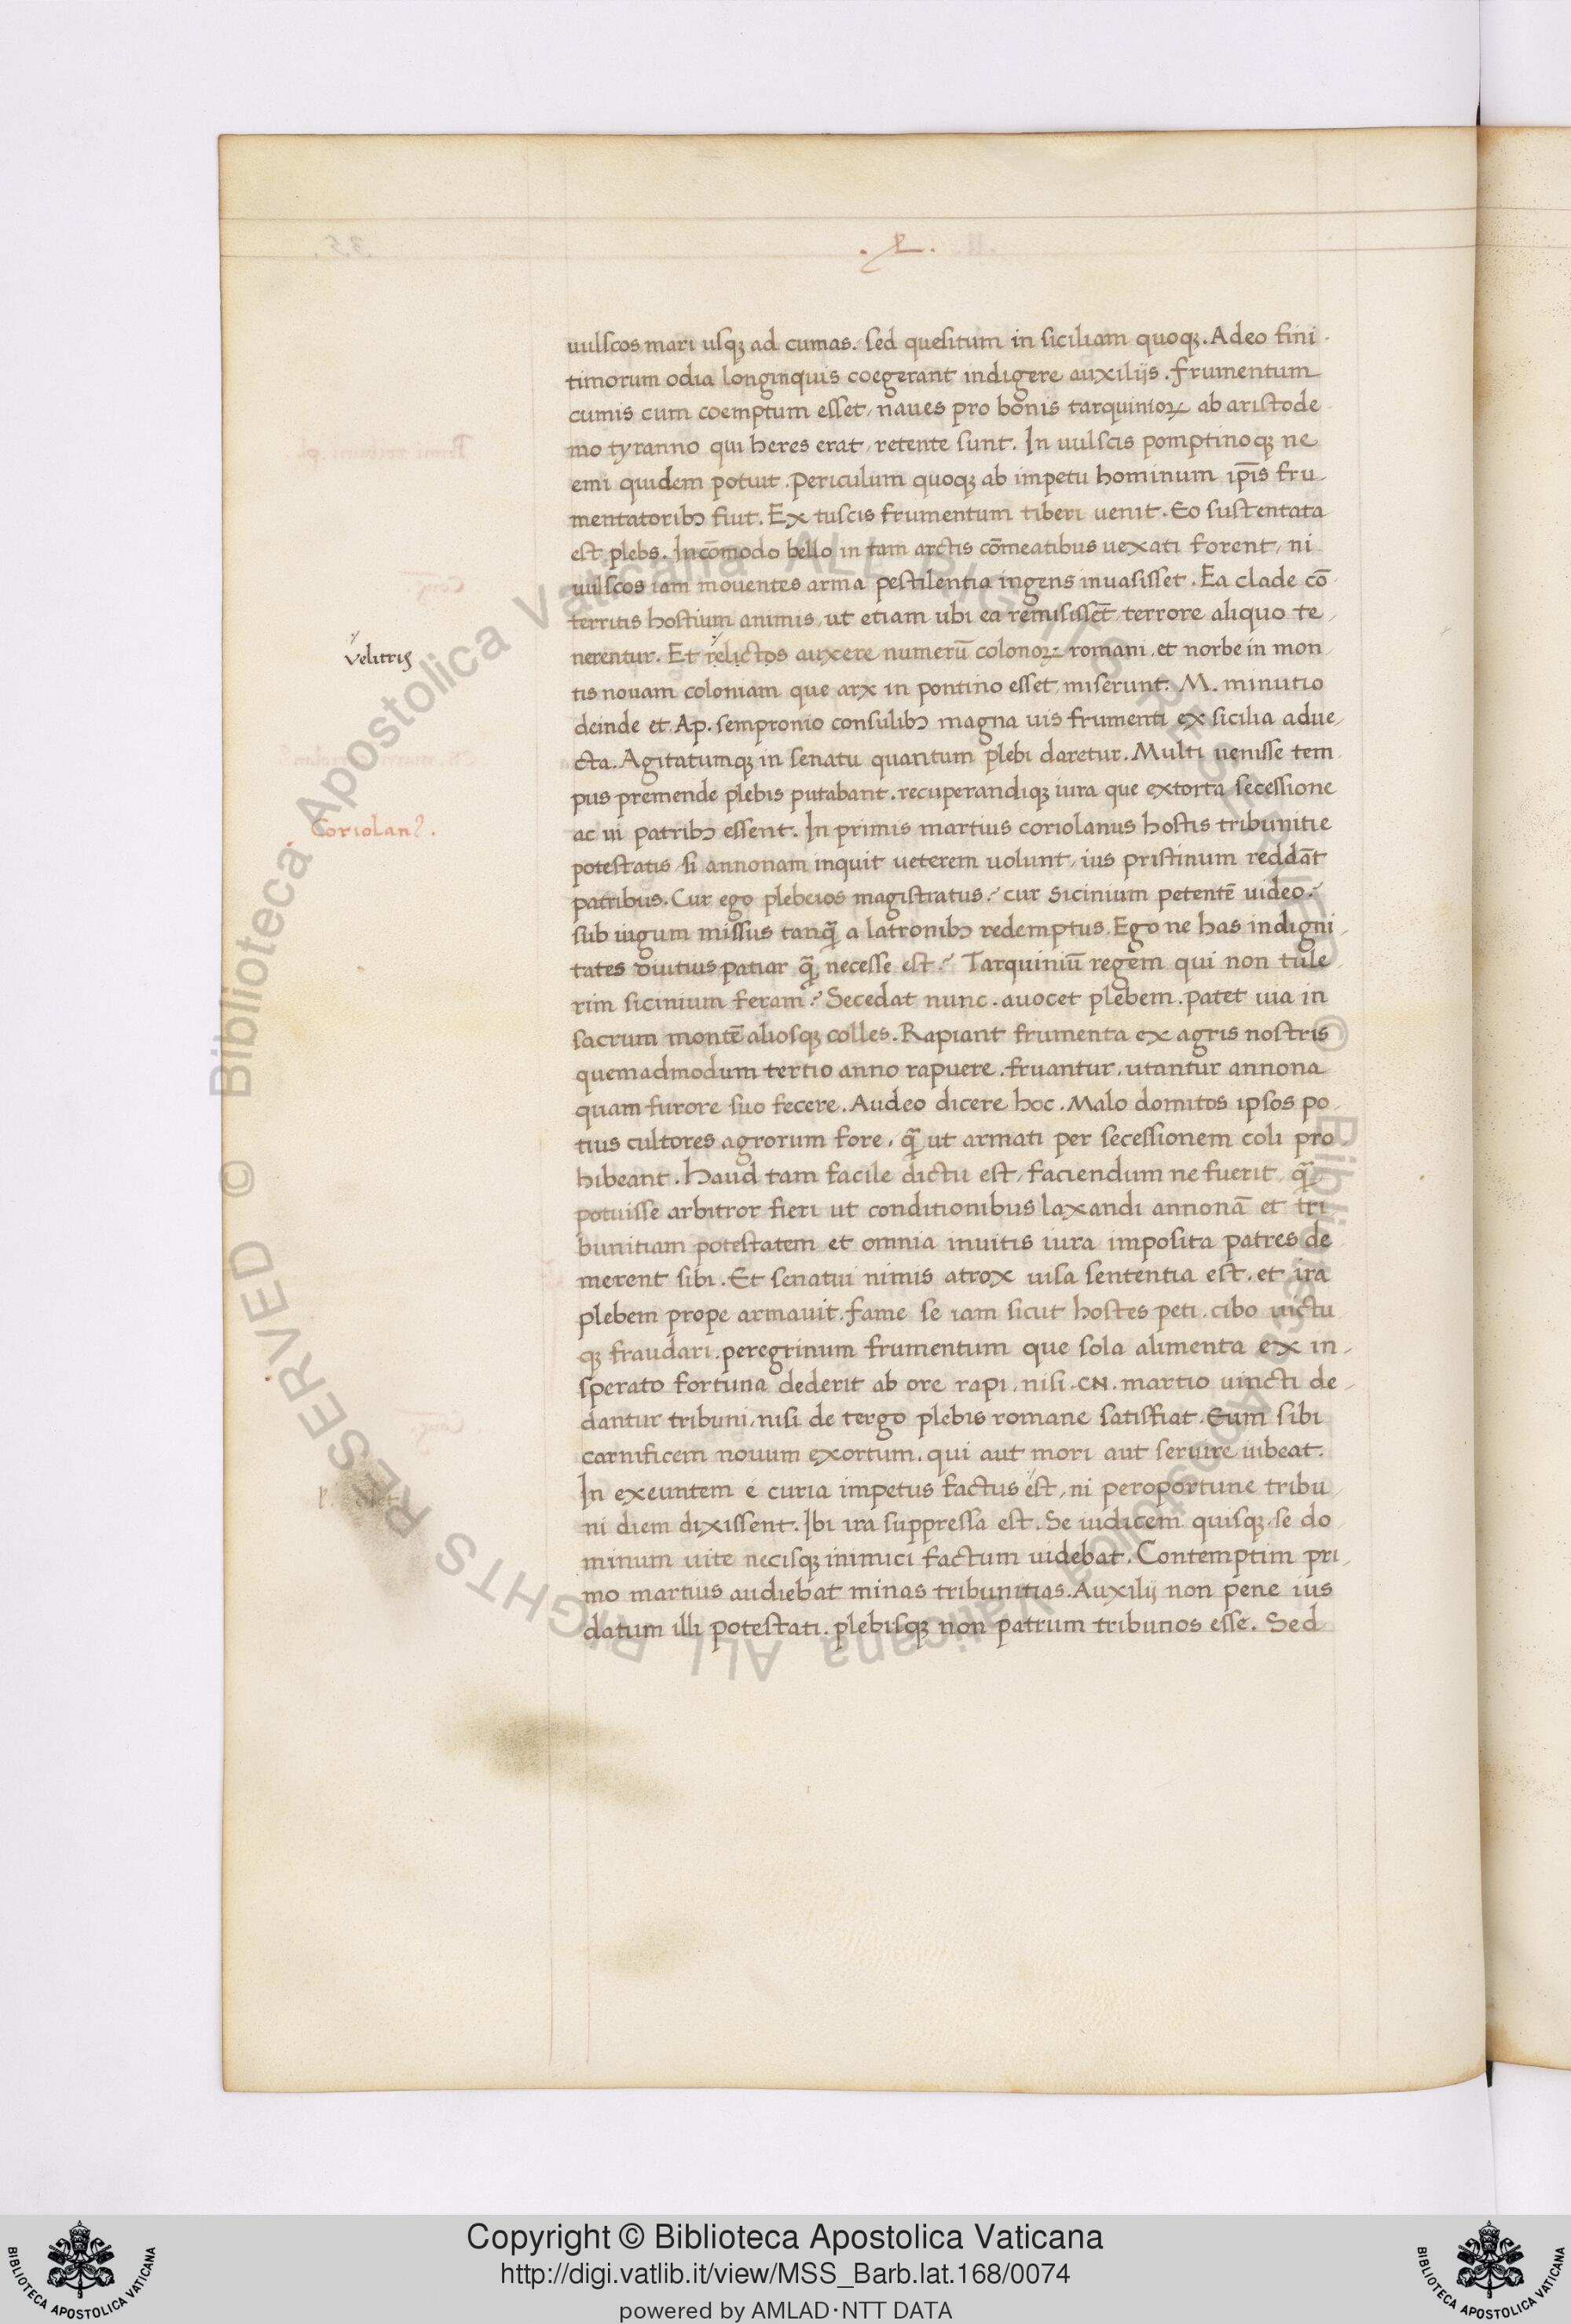 .L.
uulscos mari usqꝫ ad cumas. sed quesitum in siciliam quoqꝫ. Adeo fini
timorum odia longinquis coegerant indigere auxilijs. frumentum
cumis cum coemptum esset, naues pro bonis tarquinioꝝ ab aristode
mo tyranno qui heres erat, retente sunt. In uulscis pomptinoqꝫ ne
emi quidem potuit. periculum quoqꝫ ab impetu hominum ip̄is fru
mentatoribꝫ fiut. Ex tuscis frumentum tiberi uenit. Eo sustentata
est plebs. Incōmodo bello in tam arctis cōmeatibus uexati forent, ni
uulscos iam mouentes arma pestilentia ingens inuasisset. Ea clade cō
territis hostium animis, ut etiam ubi ea remisisset̄ terrore aliquo te
Velitris
nerentur. Et relictos auxere numerū colonoꝝ romani, et norbe in mon
tis nouam coloniam que arx in pontino esset, miserunt. M. minutio
deinde et Ap. sempronio consulibꝫ magna uis frumenti ex sicilia adue
cta. Agitatumqꝫ in senatu quantum plebi daretur. Multi uenisse tem
pus premende plebis putabant. recuperandiqꝫ iura que extorta secessione
Coriolanꝰ.
ac ui patribꝫ essent. In primis martius coriolanus hostis tribunitie
potestatis, si annonam inquit ueterem uolunt, ius pristinum reddāt
patribus. Cur ego plebeios magistratus? cur sicinium petentē uideo?
sub iugum missus tanq̄ a latronibꝫ redemptus. Ego ne has indigni
tates diutius patiar q̄ necesse est? Tarquiniū regem qui non tule
rim sicinium feram? Secedat nunc. auocet plebem. patet uia in
sacrum montē aliosqꝫ colles. Rapiant frumenta ex agris nostris
quemadmodum tertio anno rapuere. fruantur, utantur annona
quam furore suo fecere. Audeo dicere hoc. Malo domitos ipsos po
tius cultores agrorum fore, q̄ ut armati per secessionem coli pro
hibeant. Haud tam facile dictu est, faciendum ne fuerit, q̄
potuisse arbitror fieri ut conditionibus laxandi annonā et tri
bunitiam potestatem et omnia inuitis iura imposita patres de
merent sibi. Et senatui nimis atrox uisa sententia est. et ira
plebem prope armauit. fame se iam sicut hostes peti. cibo uictu
qꝫ fraudari. peregrinum frumentum que sola alimenta ex in
sperato fortuna dederit ab ore rapi. nisi .CN. martio uincti de
dantur tribuni, nisi de tergo plebis romane satisfiat. Eum sibi
carnificem nouum exortum, qui aut mori aut seruire iubeat.
In exeuntem e curia impetus factus est, ni peroportune tribu
ni diem dixissent. Ibi ira suppressa est. Se iudicem quisqꝫ. se do
minum uite necisqꝫ inimici factum uidebat. Contemptim pri
mo martius audiebat minas tribunitias. Auxilij non pene ius
datum illi potestati. plebisqꝫ non patrum tribunos esse. Sed
© Biblioteca Apostolica Vaticana ALL RIGHTS RESERVED
© Biblioteca Apostolica Vaticana ALL RIGHTS RESERVED
BIBLIOTECA APOSTOLICA VATICANA
Copyright © Biblioteca Apostolica Vaticana
http://digi.vatlib.it/view/MSS_Barb.lat.168/0074
powered by AMLAD·NTT DATA
BIBLIOTECA APOSTOLICA VATICANA